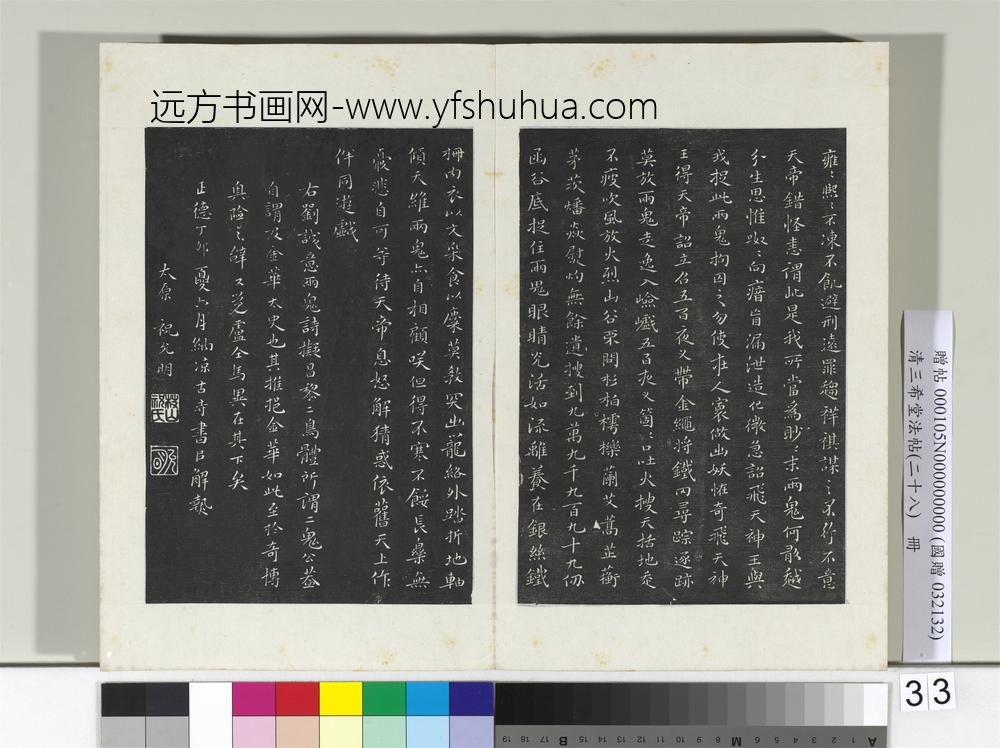 远方书画网-www.yfshuhua.com
雍雍熙熙不凍不飢避刑遠罪趨祥祺謀之不行不意
天帝錯怪恚謂此是我所當為眇眇末兩鬼何敢越
分生思惟呶呶向瘖盲漏泄造化微急詔飛天神王與
我捉此兩鬼拘囚之勿使在人寰做出妖怪奇飛天神
王得天帝詔立召五百夜叉帶金繩將鐵網尋踪逐跡
莫放兩鬼走逸入嶮巇五百夜叉箇箇口吐火搜天括地走
不疲吹風放火烈山谷不問杉柏樗櫟蘭艾蒿芷蘅
茅茨燔焱熨灼無餘遺搜到九萬九千九百九十九仞
函谷底捉住兩鬼眼睛光活如流離養在銀絲鐵
柵內衣以文采食以麋莫教突出籠絡外踏折地軸
傾天維兩鬼亦自相顧咲但得不寒不餒長樂無
憂悲自可等待天帝息怒解猜惑依舊天上作
伴同遊戲
右劉誠意兩鬼詩擬昌黎二鳥體所謂二鬼公蓋
自謂及金華太史也其推挹金華如此至於奇博
與險之辭又芝盧仝馬異在其下矣
正德丁卯夏六月納凉古寺書以解熱
太原 祝允明
贈帖 000105N000000000 (國贈 032132)
清三希堂法帖(二十八) 冊
33